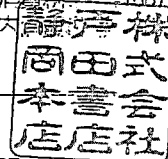 株式会社
戸田書店
静岡本店